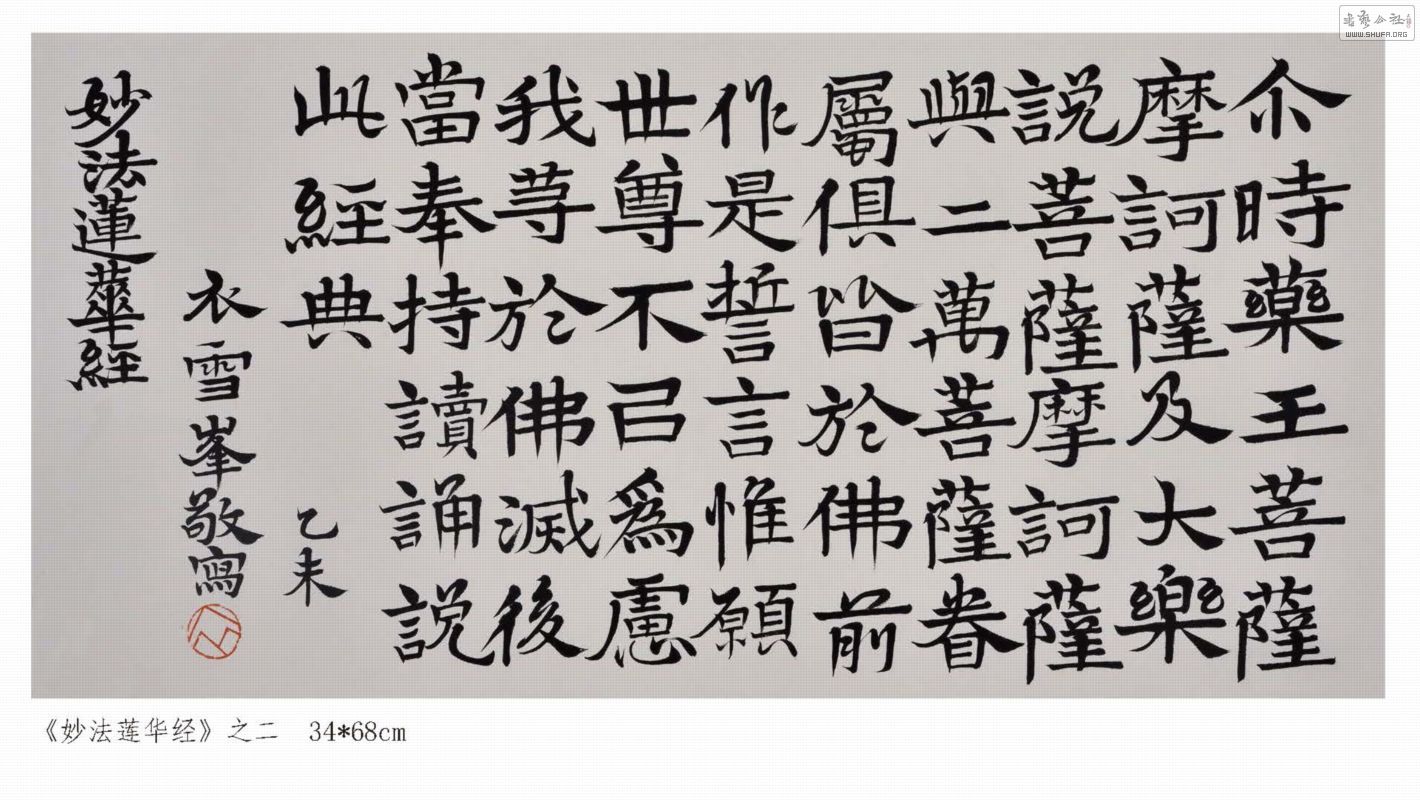 尒時藥王菩薩
摩訶薩及大樂
説菩薩摩訶薩
與二萬菩薩眷
屬俱皆於佛前
作是誓言惟願
世尊不已爲慮
我等於佛滅後
當奉持讀誦説
此經典 乙未
衣雪峯敬寫
妙法蓮華經
《妙法莲华经》之二 34*68cm
WWW.SHUFA.ORG